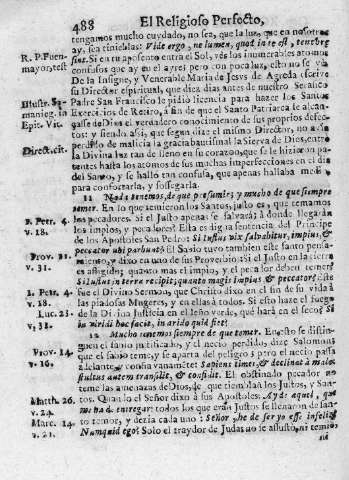 488 El Religioso Perfecto,
tengamos mucho cuydado, no sea, que la luz, que en nosotros
ay, sea tinieblas: Vide ergo, ne lumen, quod in te est, tenebræ
R. P. Fuen- sint. Si en tu aposento entra el Sol, vès los inumerables atomos
mayor, test confusos que ay en el ayre; pero con poca luz, esto no se vè
De la Insigne, y Venerable Maria de Jesvs de Agreda escrive
su Director espiritual, que diez dias antes de nuestro Serafico
Illustr. Sa- Padre San Francisco le pidiò licencia para hazer los Santos
manieg. in Exercicios de Retiro, à fin de que el Santo Patriarca le alcan-
Epit. Vit. çasse de Dios el verdadero conocimiento de sus proprios defec-
tos; y siendo assi, que segun dize el mismo Director, no avia
Direct. cit. perdido de malicia la gracia bautismal la Sierva de Dios, entrò
la Divina luz tan de lleno en su coraçon, que se le hizieron pa-
tentes hasta los atomos de sus muchas imperfecciones en el dia
del Santo, y se hallò tan confusa, que apenas hallava medio
para confortarla, y sossegarla.
11 Nada tenemos, de que presumir; y mucho de que siempre
temer. En lo que temieron los Santos, justo es, que temamos
1. Petr. 4. los pecadores. Si el Justo apenas se salvarà; à donde llegaràn
v. 18. los impios, y pecadores? Esta es digna sentencia del Principe
de los Apostoles San Pedro: Si iustus vix salvabitur, impius, &
peccator ubi parebunt? El Sabio tuvo tambien este santo pensa-
Prov. 11. miento, y dixo en uno de sus Proverbios: Si el Justo en la tierra
v. 31. es afligido; quanto mas el impio, y el pecador deben temer?
Si iustus in terra recipit; quanto magis impius & peccator? Este
1. Petr. 4. fue el Divino Sermon, que Christo dixo en el fin de su vida à
v. 18. las piadosas Mugeres, y en ellas à todos. Si esto haze el fuego
Luc. 23. de la Divina Justicia en el leño verde, què harà en el seco? Si
v. 31. in viridi hoc facit, in arido quid fiet?
12 Mucho tenemos siempre de que temer. En esto se distin-
guen el sabio justificado, y el necio perdido, dize Salomon:
Prov. 14. que el sabio teme, y se aparta del peligro; pero el necio passa
v. 16. adelante, y confia vanamente: Sapiens timet, & declinat à malo:
stultus autem transilit, & confidit. El obstinado pecador no
teme las amenazas de Dios, de que tiemblan los Justos, y San-
Matth. 26. tos. Quando el Señor dixo à sus Apostoles: Ay de aquel, que
v. 24. me ha de entregar: todos los que eran Justos se llenaron de san-
Marc. 14. to temor, y dezia cada uno: Señor, he de ser yo esse infeliz?
v. 21. Numquid ego? Solo el traydor de Judas no se assustò, ni temiò